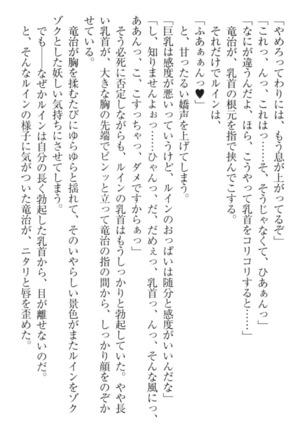 「やめろってわりには、もう息が上がってるぞ」
「これっ、んっ、これはっ……そ、そうじゃなくて、ひあぁんっ」
「なにが違うんだよ、ほら、こうやって乳首をコリコリすると……」
竜治が、乳首の根元を指で挟んでこする。
それだけでルインは、
「ふあぁぁんっ♥」
と、甘ったるい嬌声を上げてしまう。
「巨乳は感度が悪いっていうけど、ルインのおっぱいは随分と感度がいいんだな」
「し、知りませんよぉっ……ひゃんっ、だ、だめぇっ、乳首っ、んっ、そんな風にっ、
ああんっ、こ、こすっちゃっ、ダメですからぁっ」
そう必死に否定しながらも、ルインの乳首はもうしっかりと勃起していた。やや長
い乳首が、大きな胸の先端でピンッと立って竜治の指の間から、しっかり顔をのぞか
せている。
竜治が胸を揉むたびにゆらゆらと揺れて、そのいやらしい景色がまたルインをゾク
ゾクとした妖しい気持ちにさせてきた。
でも――なぜかルインは自分の長く勃起した乳首から、目が離せないのだ。
と、そんなルインの様子に気がついた竜治が、ニタリと唇を歪めた。